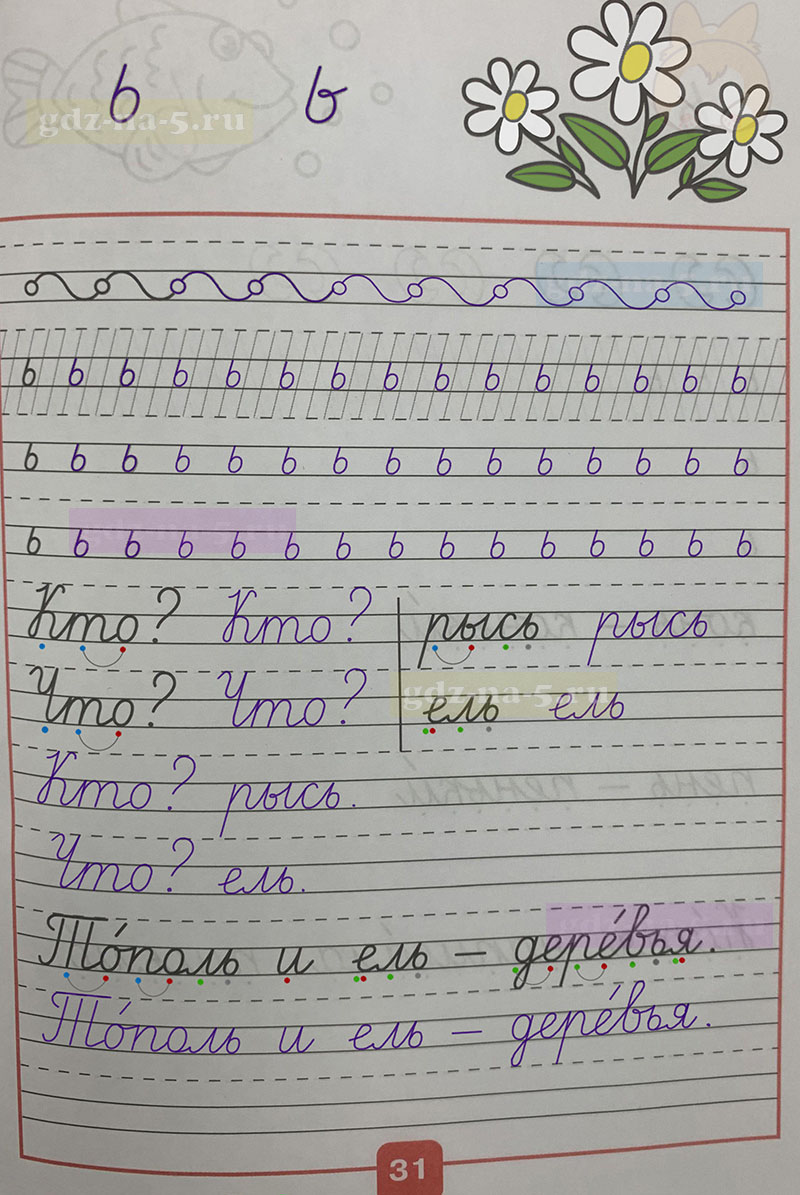 ь ь
gdz-na-5.ru
ь ь ь ь ь ь ь ь ь ь ь ь ь ь ь
ь ь ь ь ь ь ь ь ь ь ь ь ь ь ь
ь ь ь ь ь ь ь ь ь ь ь ь ь ь ь
Кто? Кто? рысь рысь
Что? Что? ель ель
gdz-na-5.ru
Кто? рысь.
Что? ель.
То́поль и ель – дере́вья.
То́поль и ель – дере́вья.
31